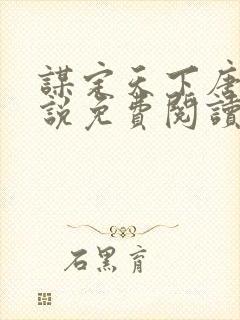 謀定天下唐
說免費閱讀
石黑育